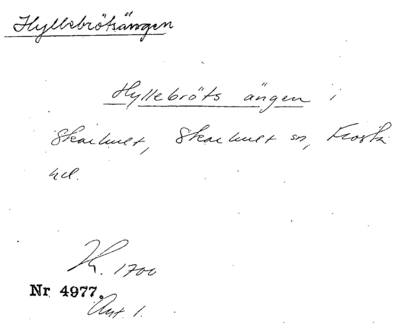 Hyllebrötsängen
Hyllebröts ängen i
Skarhult, Skarhult sn, Frosta
hd.
K. 1700
Nr 4977.
Ant. 1.